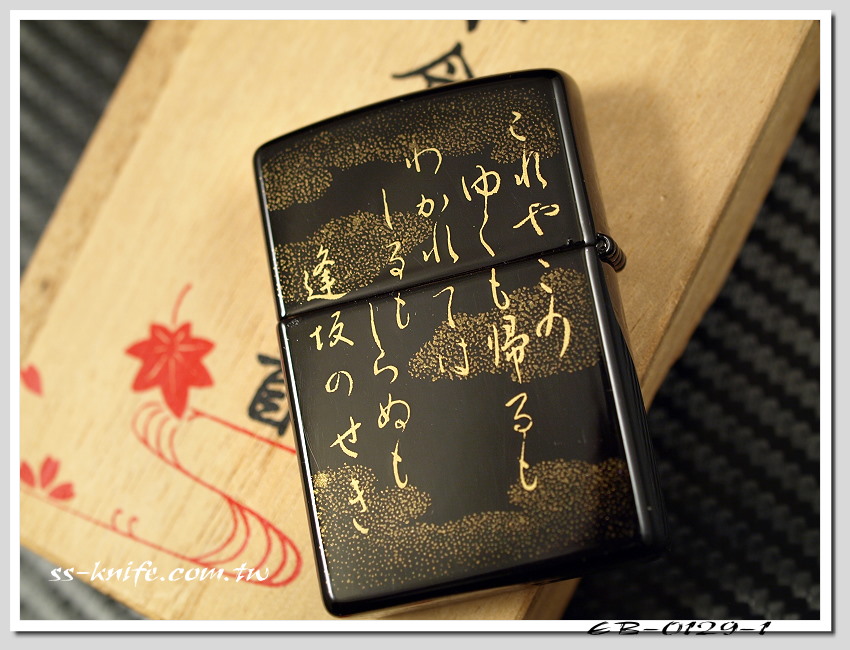 これやこの
ゆくも帰るも
わかれては
しるもしらぬも
逢坂のせき
ss-knife.com.tw
EB-0129-1